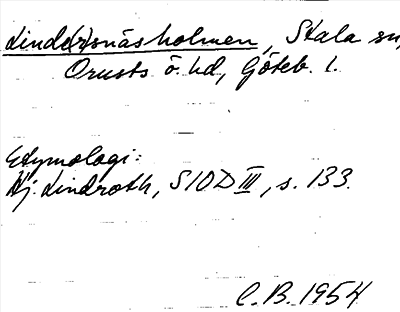 Linde(r)snäsholmen, Stala sn,
Orusts ö. hd, Göteb. l.
Etymologi:
Hj. Lindroth, SIOD III, s. 133.
C.B. 1954